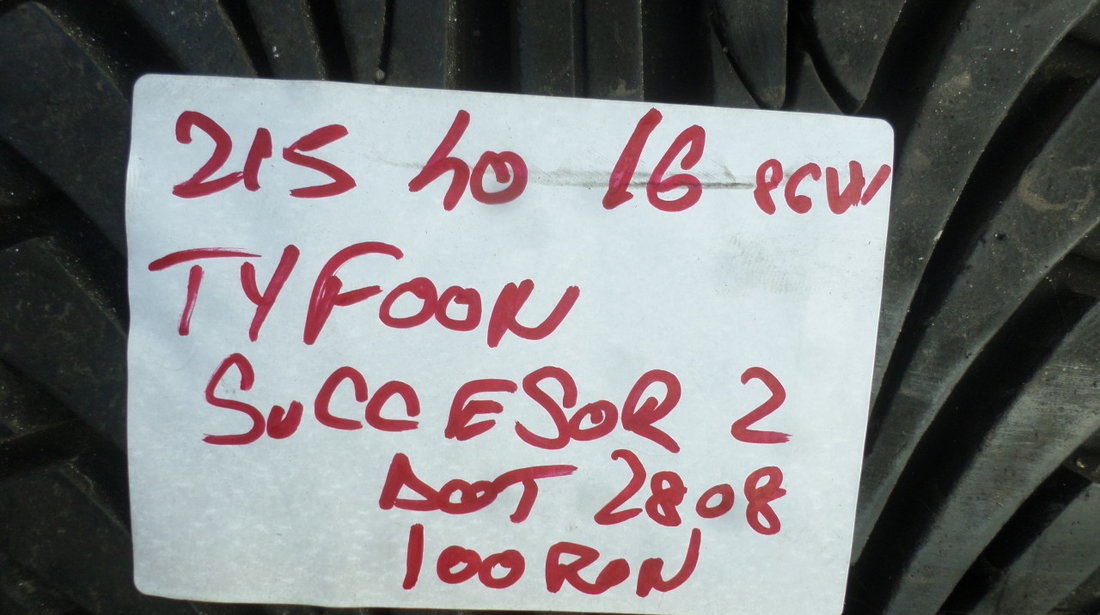 215 40 16 86W
TYFOON
SUCCESOR 2
DOT 2808
100 RON